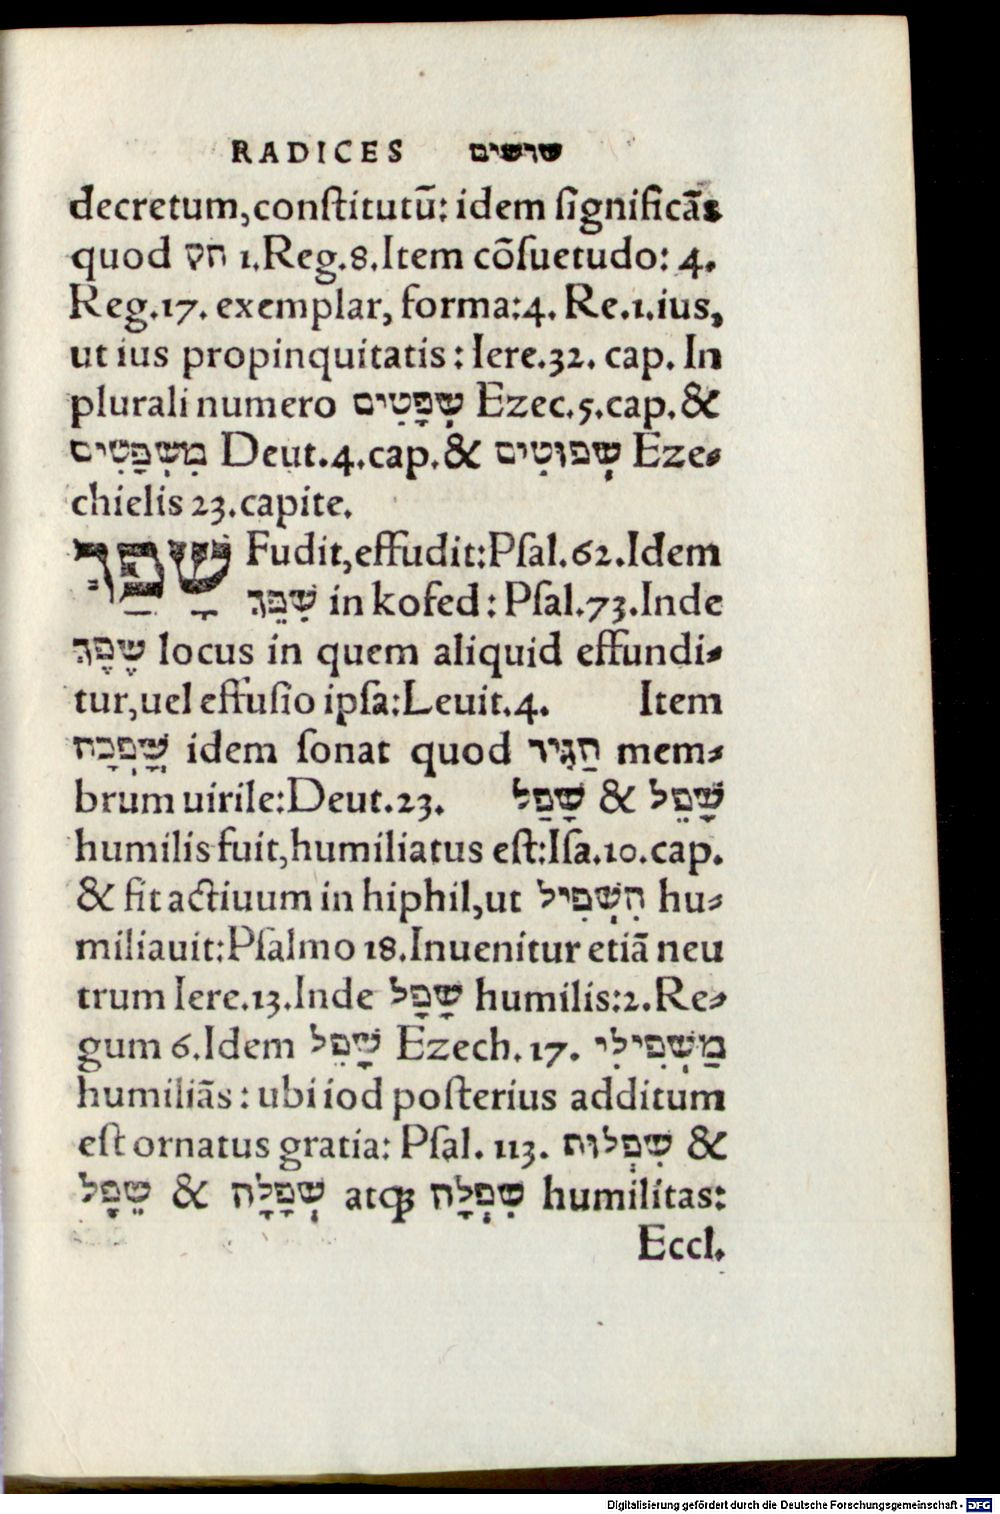 RADICES שרשים
decretum,constitutū: idem significãs
quod חק 1.Reg.8.Item cõsuetudo: 4.
Reg.17. exemplar, forma:4. Re.1.ius,
ut ius propinquitatis: Iere.32. cap. In
plurali numero שְׁפָּטִים Ezec.5.cap.&
מִשְׁפָּטִים Deut.4.cap.& שְׁפוּטִים Eze-
chielis 23.capite.
שָׁפַךְ Fudit,effudit:Psal.62.Idem
שֻׁפַּךְ in kofed: Psal.73.Inde
שֶׁפֶךְ locus in quem aliquid effundi-
tur,uel effusio ipsa:Leuit.4. Item
שָׁפְכָה idem sonat quod הַגִּיד mem-
brum uirile:Deut.23. שָׁפֵל & שָׁפַל
humilis fuit,humiliatus est:Isa.10.cap.
& fit actiuum in hiphil,ut הִשְׁפִּיל hu-
miliauit:Psalmo 18.Inuenitur etiã neu
trum Iere.13.Inde שָׁפָל humilis:2.Re-
gum 6.Idem שָׁפֵל Ezech. 17. מַשְׁפִּילִי
humiliãs: ubi iod posterius additum
est ornatus gratia: Psal. 113. שִׁפְלוּת &
שֵׁפָל & שְׁפָלָה atq; שִׁפְלָה humilitas:
Eccl.
Digitalisierung gefördert durch die Deutsche Forschungsgemeinschaft - DFG